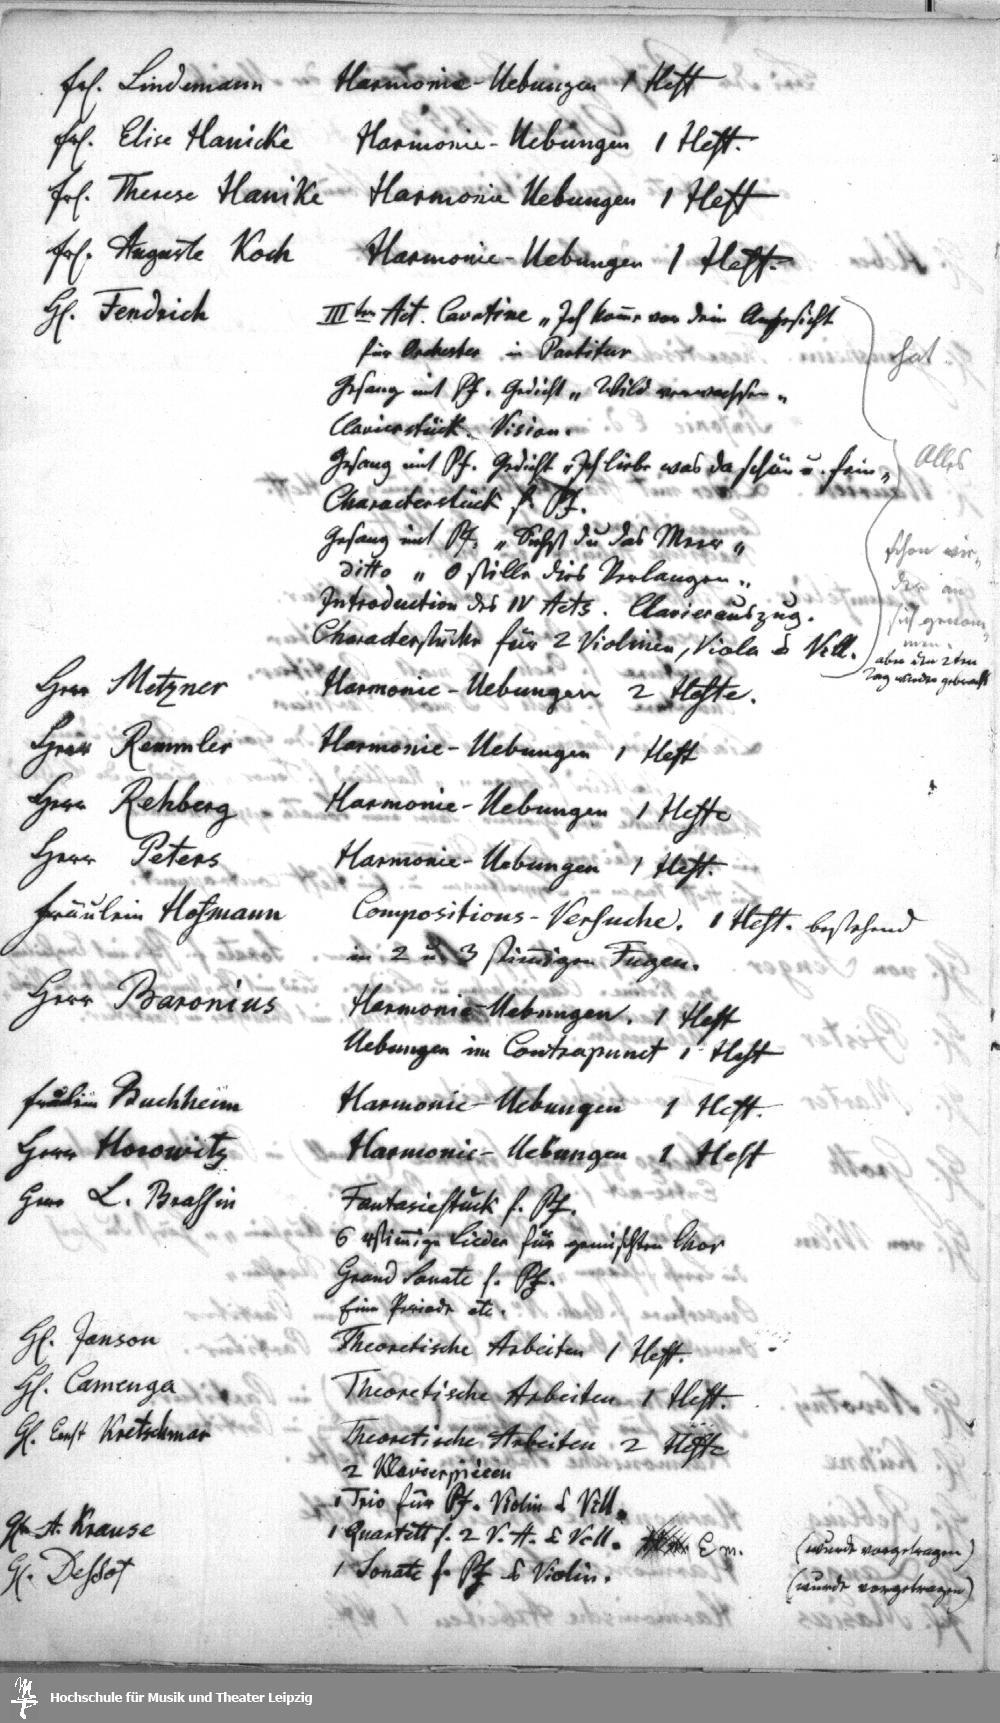 Frl. Lindemann Harmonie-Uebungen 1 Heft
Frl. Elise Hanicke Harmonie-Uebungen 1 Heft.
Frl. Therese Hanike Harmonie Uebungen 1 Heft
Frl. Auguste Koch Harmonie-Uebungen 1 Heft.
H. Fendrich III ten Act. Cavatine „Ich kom̅e vor dein Angesicht
für Orchester in Partitur
Gesang mit Pf. Gedicht „Wild verwachsen„
Clavierstück. Vision.
Gesang mit Pf. Gedicht „Ich liebe was da schön u. fein„
Characterstück f. Pf.
Gesang mit Pf. „Siehst du das Meer„
ditto „O stille dies Verlangen„
Introduction des IV Acts. Clavierauszug.
Characterstücke für 2 Violinen, Viola & Vcll.
hat
Alles
schon wie-
der an
sich genom-
men.
aber den 2ten
Tag wieder gebracht
Herr Metzner Harmonie-Uebungen 2 Hefte.
Herr Remmler Harmonie-Uebungen 1 Heft
Herr Rehberg Harmonie-Uebungen 1 Hefte
Herr Peters Harmonie-Uebungen 1 Heft.
Fräulein Hofmann Compositions-Versuche. 1 Heft. bestehend
in 2 u. 3 stim̅igen Fugen.
Herr Baronius Harmonie-Uebungen. 1 Heft
Uebungen im Contrapunct 1 Heft
Fräulein Buchheim Harmonie-Uebungen 1 Heft.
Herr Horowitz Harmonie-Uebungen 1 Heft
Herr L. Brassin Fantasiestück f. Pf.
6 4stim̅ige Lieder für gemischten Chor
Grand Sonate f. Pf.
Eine Periode etc.
H. Janson Theoretische Arbeiten 1 Heft.
H. Camenga Theoretische Arbeiten 1 Heft.
H. Ernst Kretschmar Theoretische Arbeiten 2 Hefte
2 Klavierpiecen
1 Trio für Pf. Violin & Vcll.
Hr. A. Krause 1 Quartett f. 2 V. A. & Vcll. E m. (wurde vorgetragen)
H. Dessof 1 Sonate f. Pf & Violin. (wurde vorgetragen)
Hochschule für Musik und Theater Leipzig